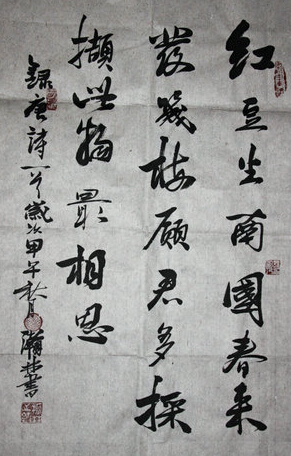 紅豆生南國春来
發幾枝願君多採
擷此物最相思
録唐詩一首歲次甲午秋月瀚林書